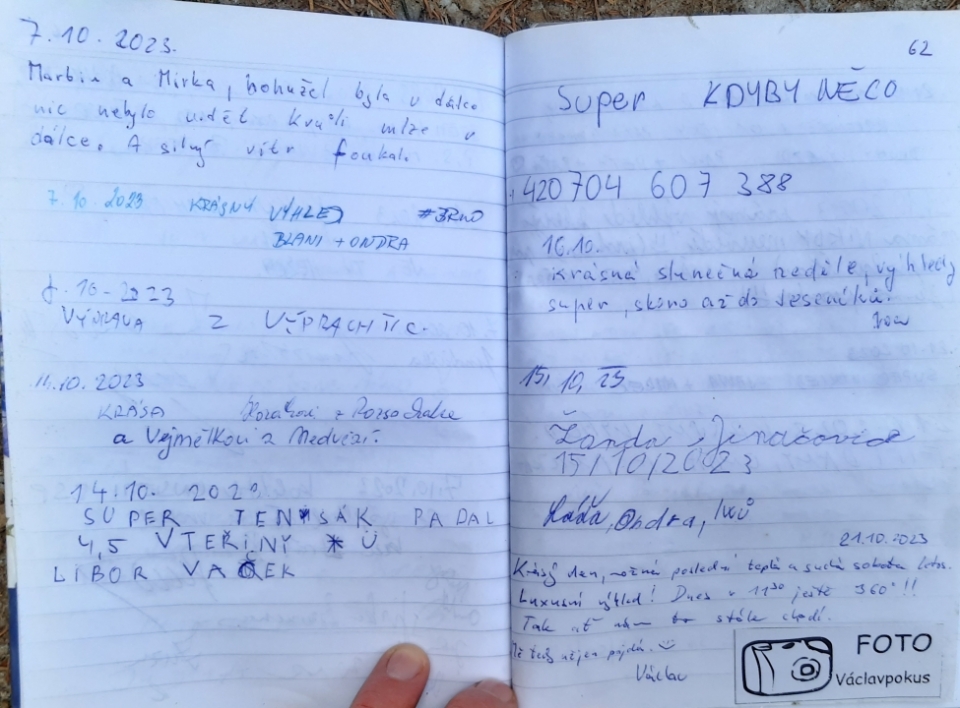 7.10.2023.
Martin a Mirka, bohužel byla v dálce
nic nebylo vidět kvůli mlze v
dálce. A silný vítr foukal.
7.10 2023 KRÁSNÝ VÝHLED #BRNO
BLANI + ONDRA
8.10-2023
VÝPRAVA Z VÝPRACHTIC.
11.10.2023
KRÁSA
a Vejmělkovi z Medvězí.
14.10. 2023
SUPER TENISÁK PADAL
4,5 VTEŘINY * Ü
LIBOR VAŠEK
62
Super KDYBY NĚCO
+420704 607 388
16.10.
Krásná slunečná neděle, výhledy
super, skoro až do Jeseníků.
15, 10, 23
Žanda
15/10/2023
Láďa, Ondra,
21.10.2023
Krásný den, možná poslední teplá a suchá sobota letos.
Luxusní výhled! Dnes v 11³⁰ ještě 360°!!
Tak ať nám to stále chodí.
Václav
FOTO
Václavpokus